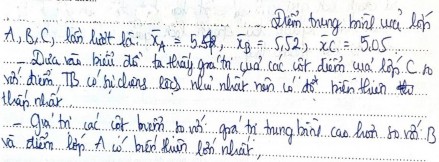 Điểm trung bình của lớp
A, B, C, lần lượt là: x̄A = 5.58, x̄B = 5,52, xC = 5.05
- Dựa vào biểu đồ ta thấy giá trị của các cột điểm của lớp C so
với điểm TB có sự chênh lệch nhỏ nhất nên có độ biến thiên
thấp nhất
- Giá trị các cột so với giá trị trung bình cao hơn so với B
và điểm lớp A có biến thiên lớn nhất,